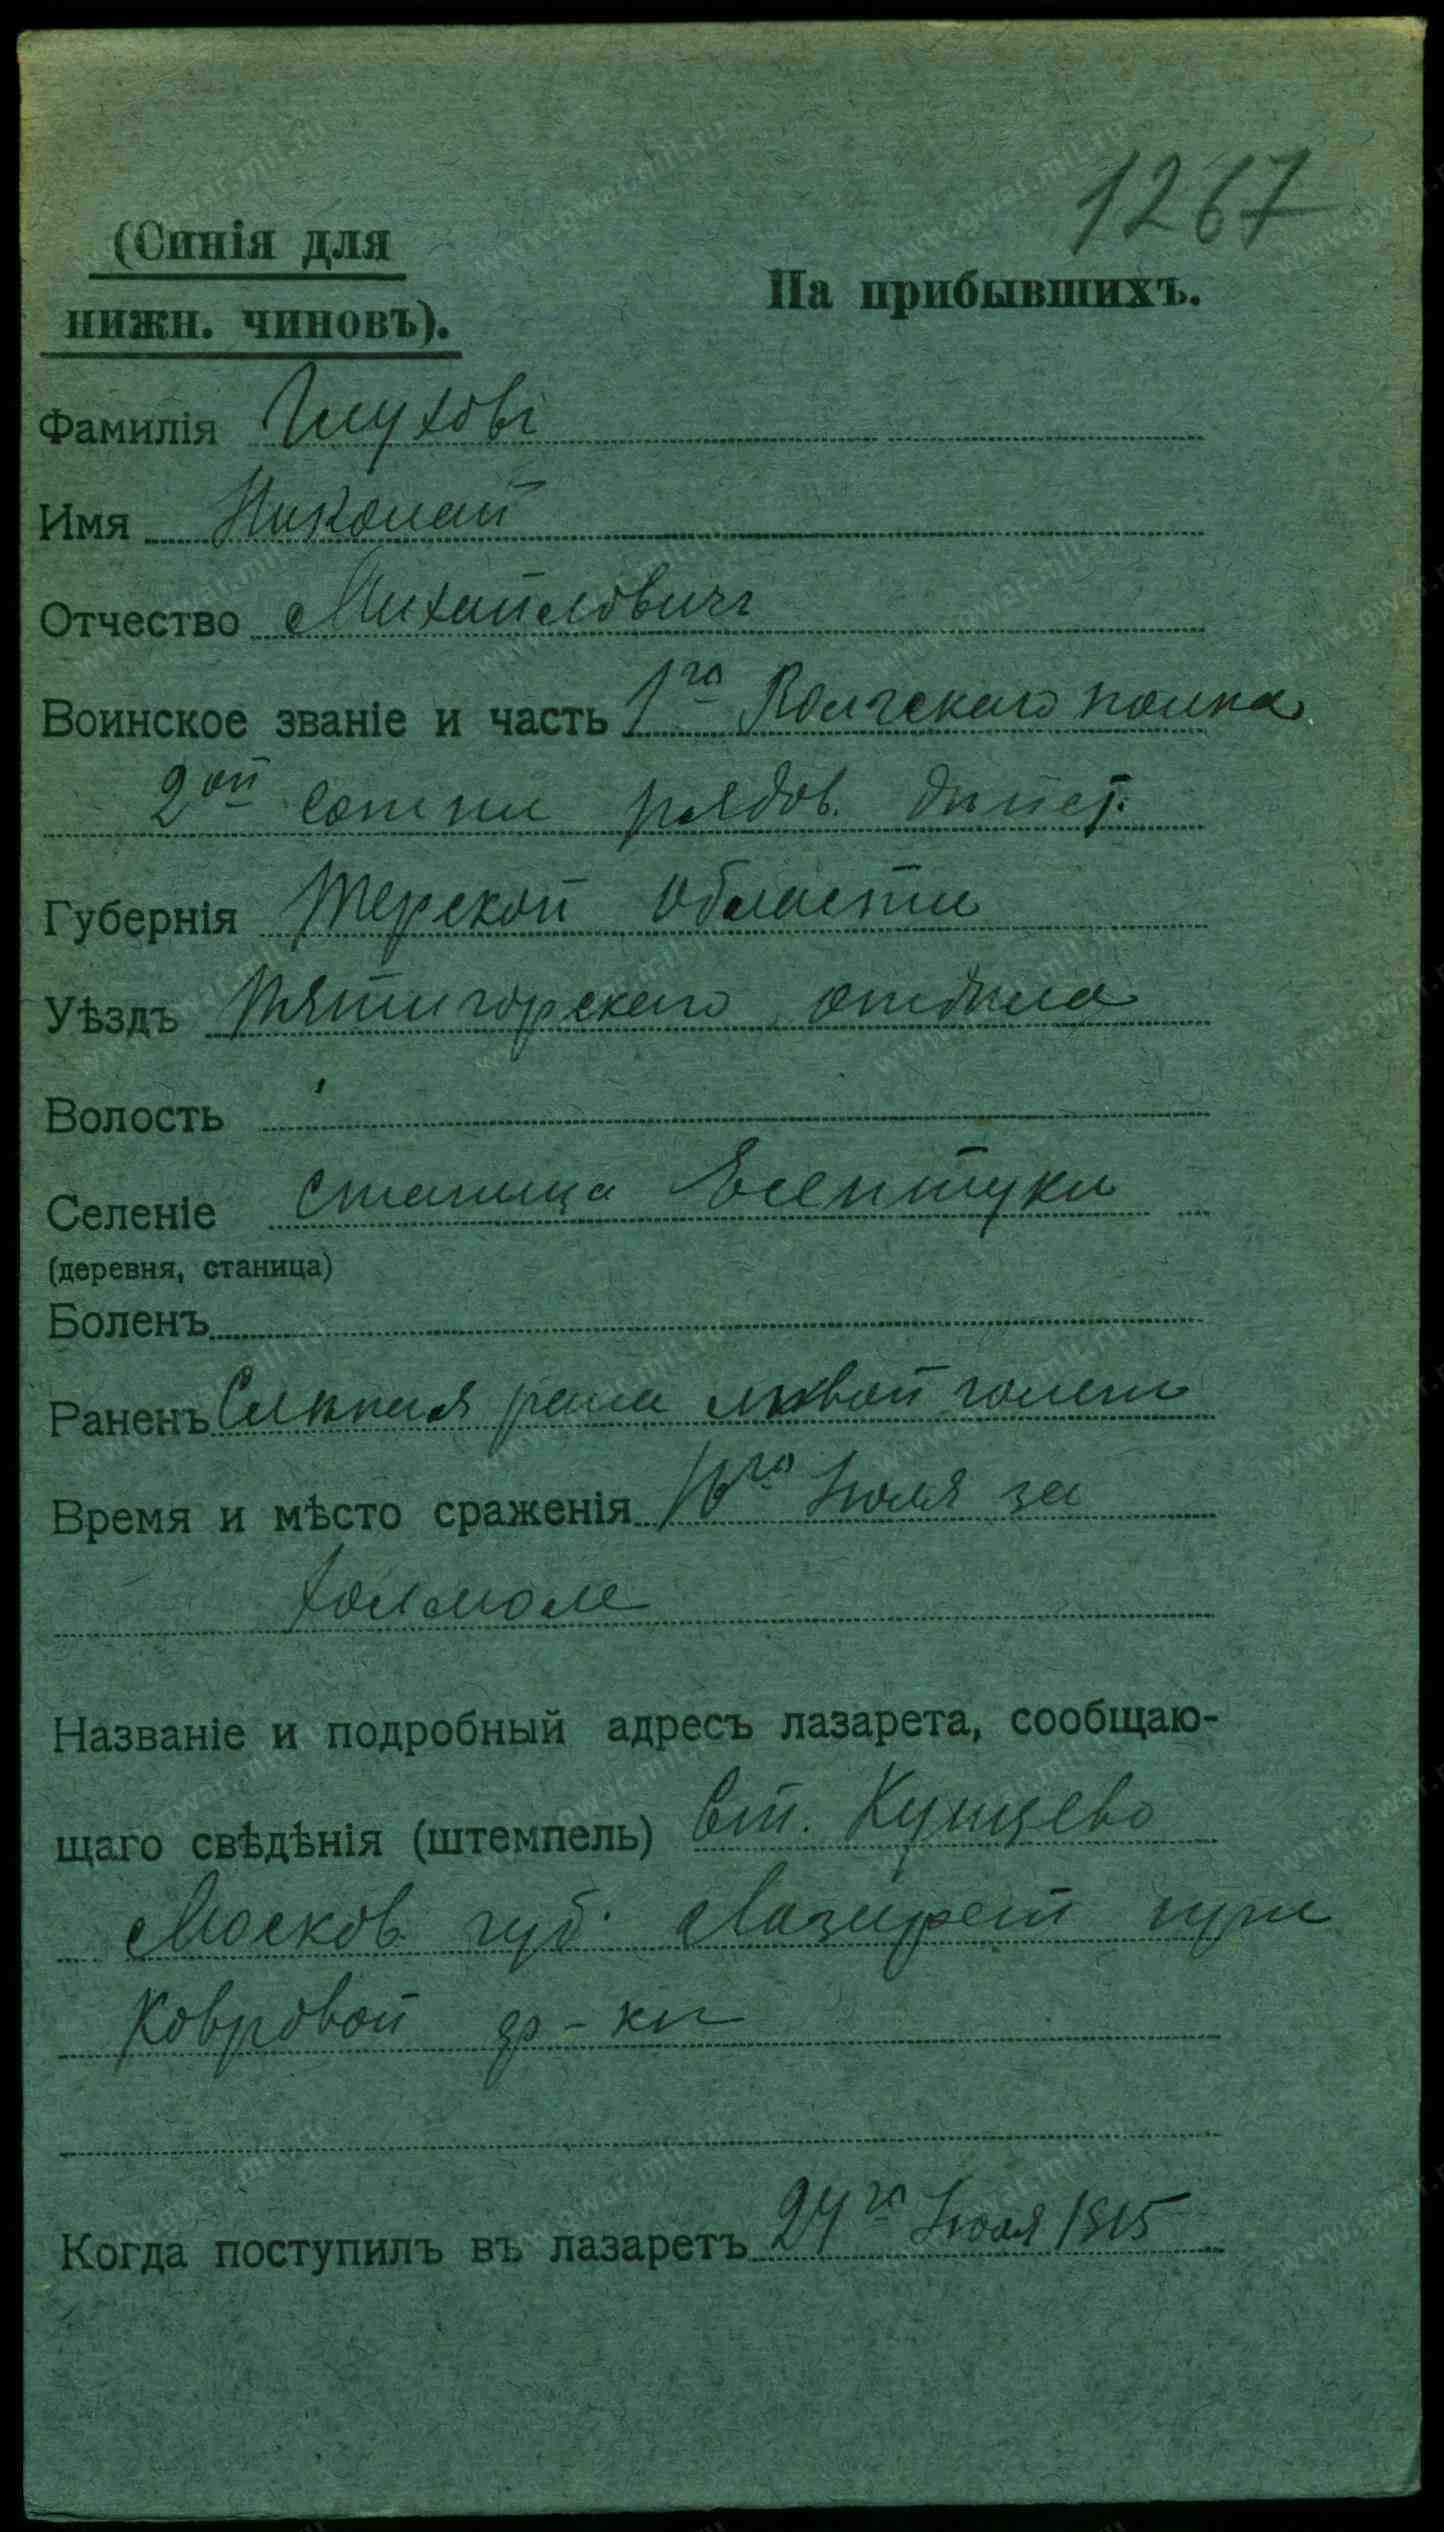 1267
(Синія для
На прибывшихъ.
нижн. чиновъ).
Фамилія Глуховъ
Имя Николай
Отчество Михайловичъ
Воинское званіе и часть 1го Волгскаго полка
2ой сотни рядов. дѣйст.
Губернія Терской области
Уѣздъ Пятигорскаго отдѣла
Волость
Селеніе станица Есентуки
(деревня, станица)
Боленъ
Раненъ рана лѣвой голени
Время и мѣсто сраженія 16го Іюля за
Холмом
Названіе и подробный адресъ лазарета, сообщаю-
щаго свѣдѣнія (штемпель) Ст. Кунцево
Москов. губ. Лазарет при
Ковровой ф-кѣ
Когда поступилъ въ лазаретъ 24го Іюля 1915
www.gwar.mil.ru